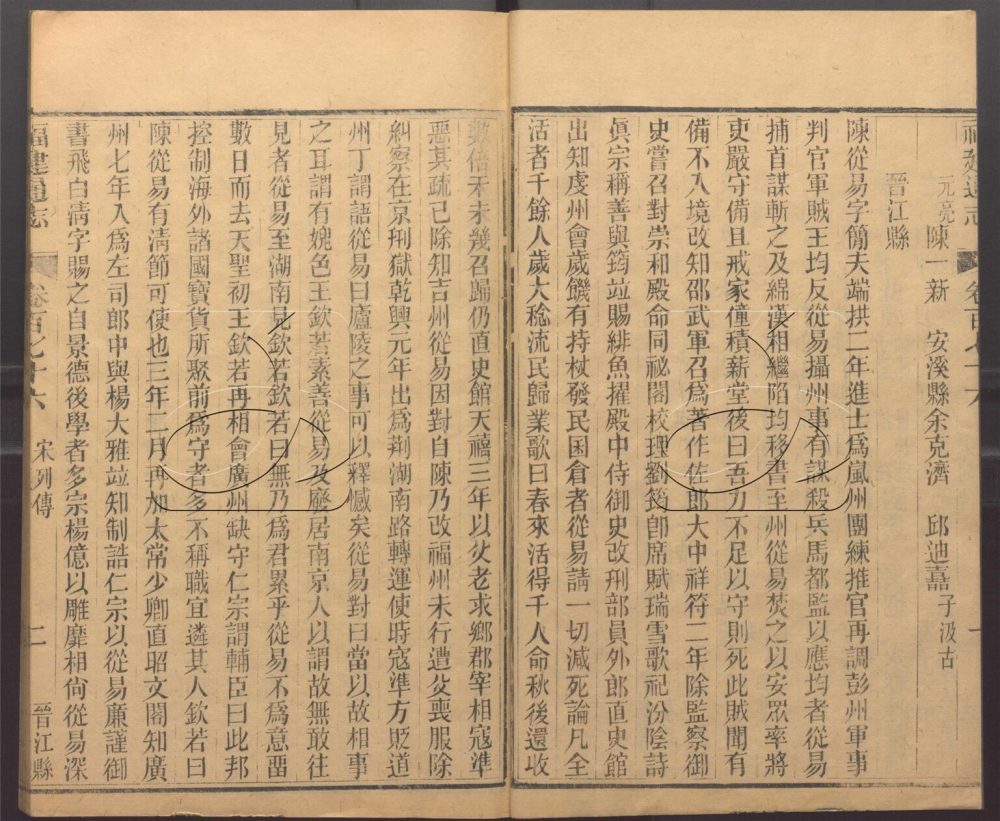 福建通志 卷百七十六 一
元亮 陳一新 安溪縣余克濟 邱迪嚞子汲古
晉江縣
陳從易字簡夫端拱二年進士爲嵐州團練推官再調彭州軍事
判官軍賊王均反從易攝州事有謀殺兵馬都監以應均者從易
捕首謀斬之及綿漢相繼陷均移書至州從易焚之以安眾率將
吏嚴守備且戒家僮積薪堂後曰吾力不足以守則死此賊聞有
備不入境改知邵武軍召爲著作佐郎大中祥符二年除監察御
史嘗召對崇和殿命同祕閣校理劉筠卽席賦瑞雪歌祀汾陰詩
眞宗稱善與筠竝賜緋魚擢殿中侍御史改刑部員外郎直史館
出知虔州會歲饑有持杖發民囷倉者從易請一切減死論凡全
活者千餘人歲大稔流民歸業歌曰春來活得千人命秋後還收
數倍禾未幾召歸仍直史館天禧三年以父老求鄉郡宰相寇準
惡其疏己除知吉州從易因對自陳乃改福州未行遭父喪服除
糾察在京刑獄乾興元年出爲荆湖南路轉運使時寇準方貶道
州丁謂語從易曰廬陵之事可以釋憾矣從易對曰當以故相事
之耳謂有媿色王欽若素善從易及廢居南京人以謂故無敢往
見者從易至湖南見欽若欽若曰無乃爲君累乎從易不爲意畱
數日而去天聖初王欽若再相會廣州缺守仁宗謂輔臣曰此邦
控制海外諸國寶貨所聚前爲守者多不稱職宜遴其人欽若曰
陳從易有淸節可使也三年二月再加太常少卿直昭文閣知廣
州七年入爲左司郎中與楊大雅竝知制誥仁宗以從易廉謹御
書飛白淸字賜之自景德後學者多宗楊億以雕靡相尙從易深
福建通志 卷百七十六 宋列傳 二 晉江縣